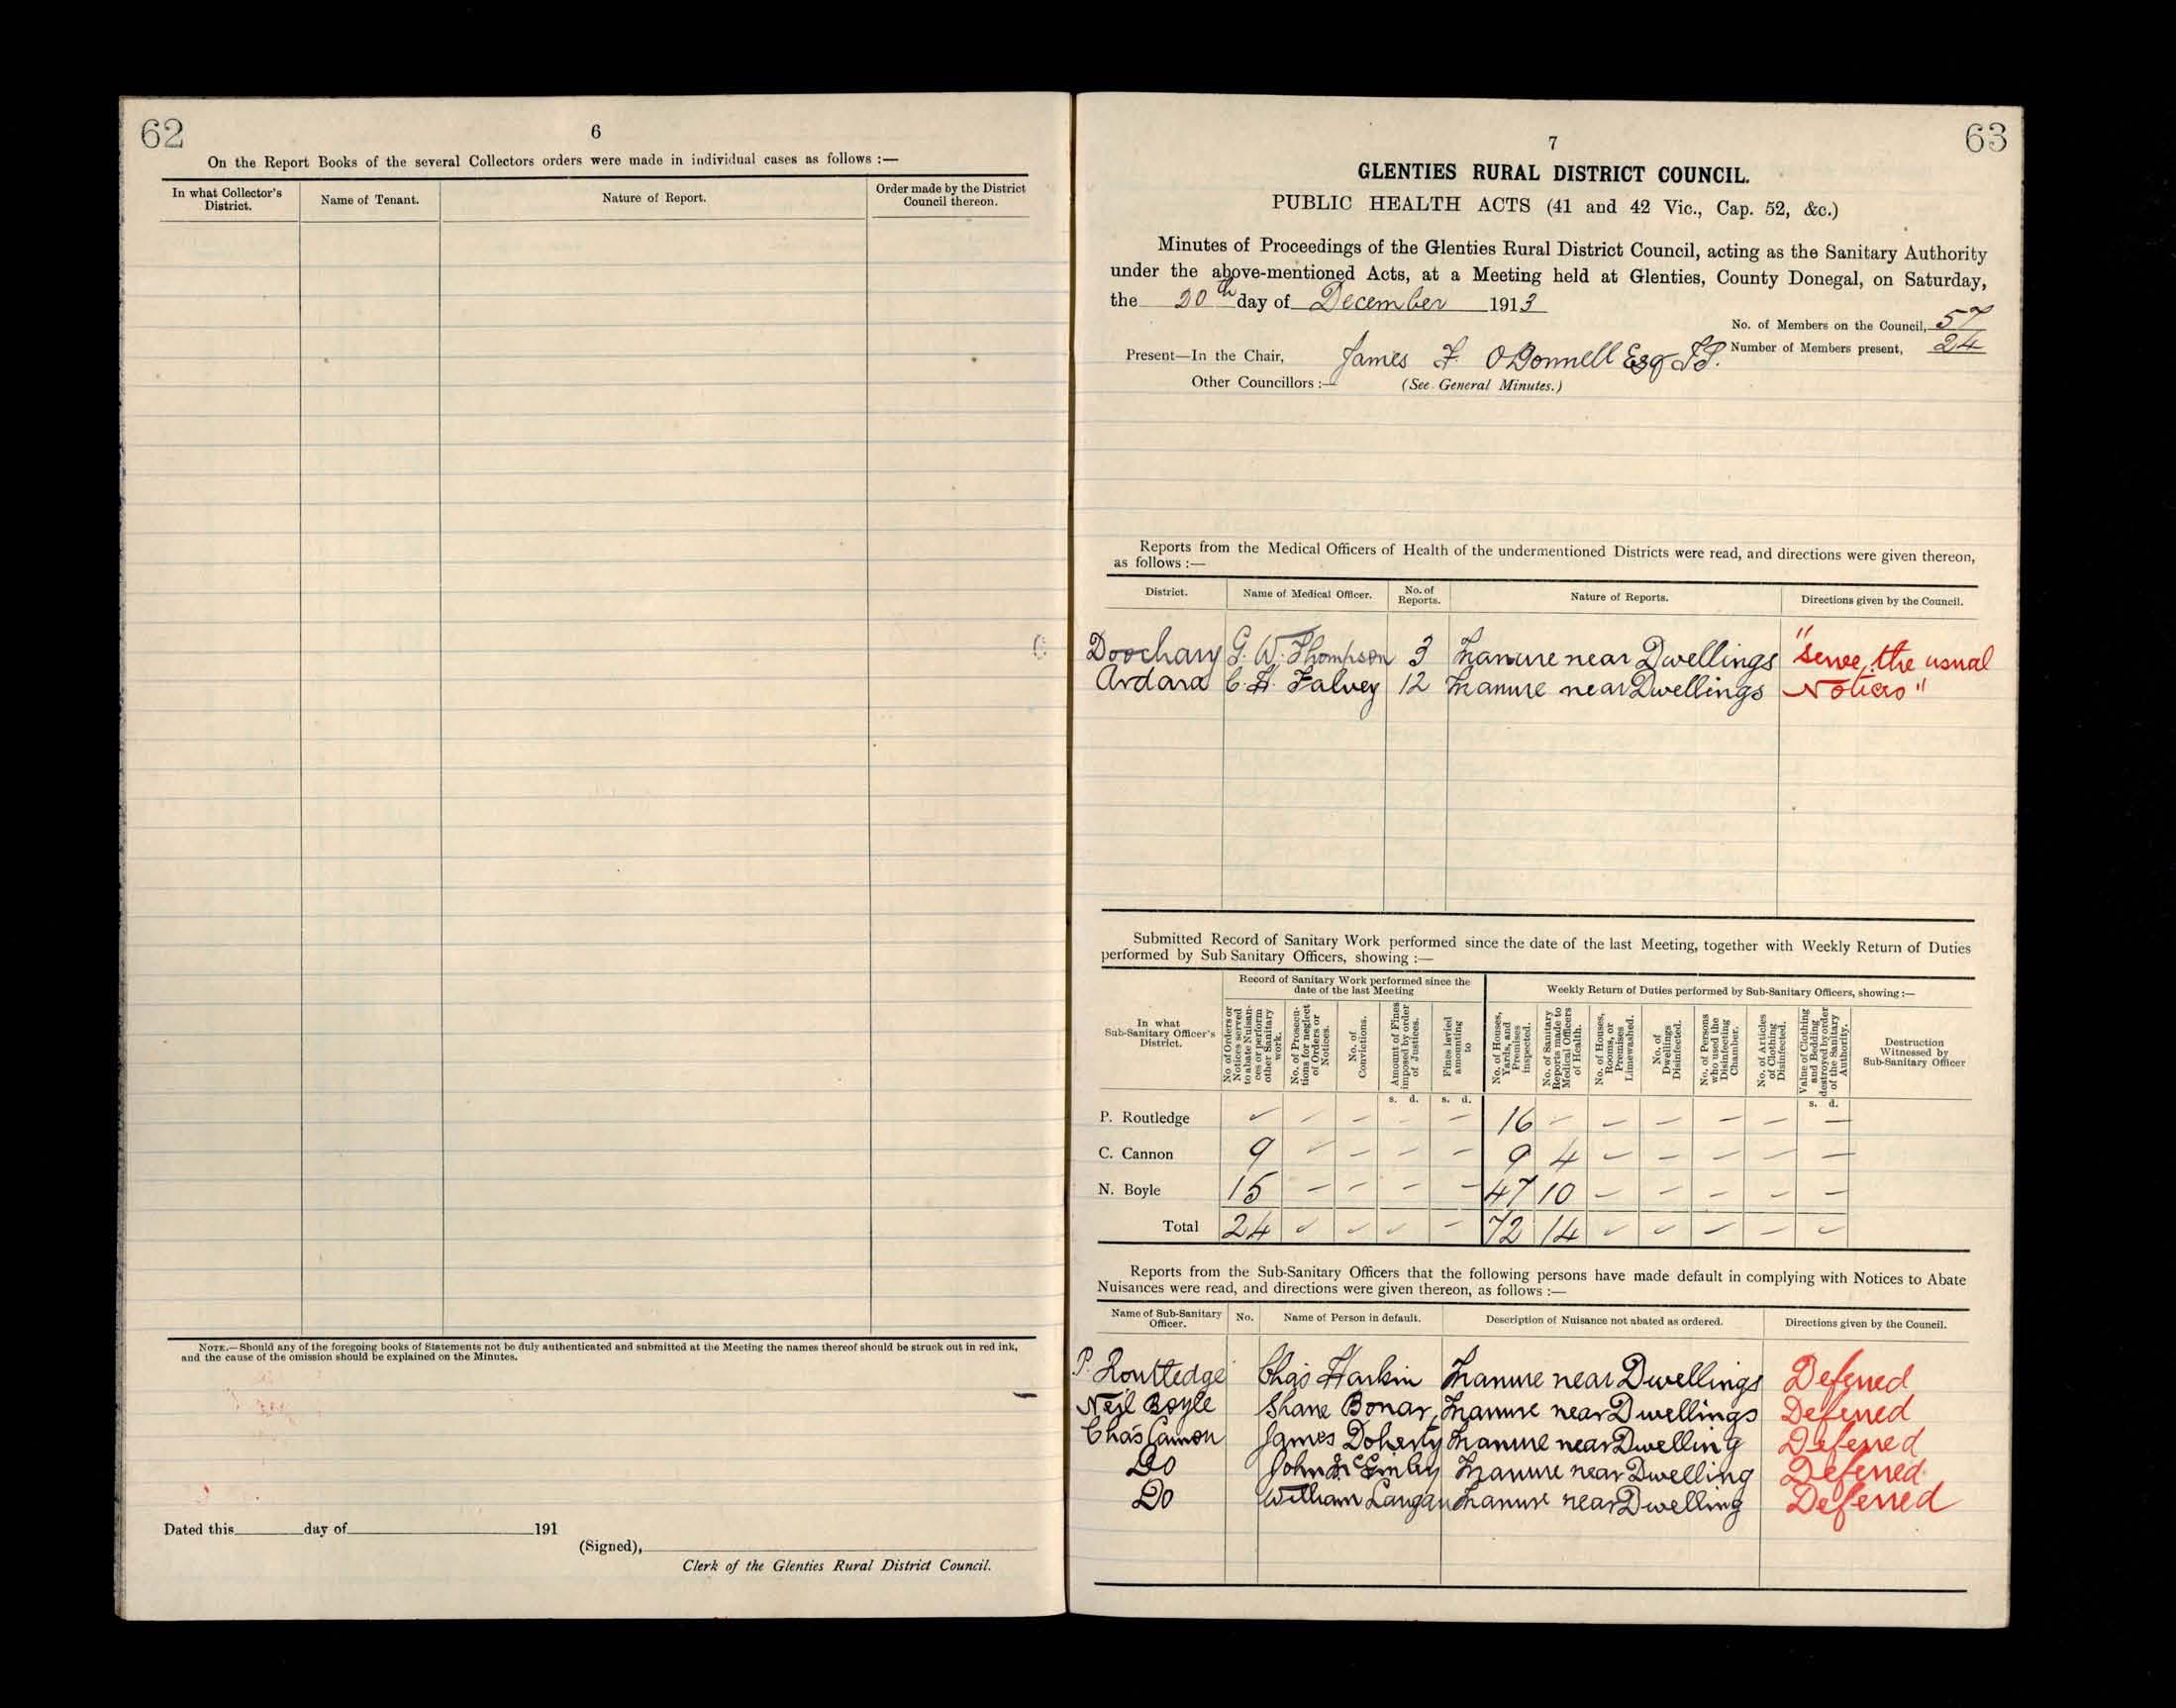 62
6
On the Report Books of the several Collectors orders were made in individual cases as follows :—
In what Collector's District.
Name of Tenant.
Nature of Report.
Order made by the District Council thereon.
NOTE.—Should any of the foregoing books of Statements not be duly authenticated and submitted at the Meeting the names thereof should be struck out in red ink,
and the cause of the omission should be explained on the Minutes.
Dated this day of 191
(Signed),
Clerk of the Glenties Rural District Council.
63
7
GLENTIES RURAL DISTRICT COUNCIL.
PUBLIC HEALTH ACTS (41 and 42 Vic., Cap. 52, &c.)
Minutes of Proceedings of the Glenties Rural District Council, acting as the Sanitary Authority
under the above-mentioned Acts, at a Meeting held at Glenties, County Donegal, on Saturday,
the 20th day of December 1913
No. of Members on the Council, 57
Present—In the Chair, James F. O'Donnell Esq J.P. Number of Members present, 24
Other Councillors :— (See General Minutes.)
Reports from the Medical Officers of Health of the undermentioned Districts were read, and directions were given thereon,
as follows :—
District. Name of Medical Officer. No. of Reports. Nature of Reports. Directions given by the Council.
Doochary G. W. Thompson 3 Manure near Dwellings "Serve the usual
Ardara C. H. Falvey 12 Manure near Dwellings Notices"
Submitted Record of Sanitary Work performed since the date of the last Meeting, together with Weekly Return of Duties
performed by Sub Sanitary Officers, showing :—
In what Sub-Sanitary Officer's District.
Record of Sanitary Work performed since the date of the last Meeting
Weekly Return of Duties performed by Sub-Sanitary Officers, showing :—
No of Orders or Notices served to abate Nuisances or perform other Sanitary work.
No. of Prosecutions for neglect of Orders or Notices.
No. of Convictions.
Amount of Fines imposed by order of Justices.
Fines levied amounting to
No. of Houses, Yards, and Premises inspected.
No. of Sanitary Reports made to Medical Officers of Health.
No. of Houses, Rooms, or Premises Limewashed.
No. of Dwellings Disinfected.
No. of Persons who used the Disinfecting Chamber.
No. of Articles of Clothing Disinfected.
Value of Clothing and Bedding destroyed by order of the Sanitary Authority.
Destruction Witnessed by Sub-Sanitary Officer
s. d. s. d. s. d.
P. Routledge – – – – – 16 – – – – – –
C. Cannon 9 – – – – 9 4 – – – – –
N. Boyle 15 – – – – 47 10 – – – – –
Total 24 – – – – 72 14 – – – – –
Reports from the Sub-Sanitary Officers that the following persons have made default in complying with Notices to Abate
Nuisances were read, and directions were given thereon, as follows :—
Name of Sub-Sanitary Officer. No. Name of Person in default. Description of Nuisance not abated as ordered. Directions given by the Council.
P. Routledge Chas Harkin Manure near Dwellings Deferred
Neil Boyle Shane Bonar, Manure near Dwellings Deferred
Chas Cannon James Doherty Manure near Dwelling Deferred
Do John McGinley Manure near Dwelling Deferred
Do William Langan Manure near Dwelling Deferred